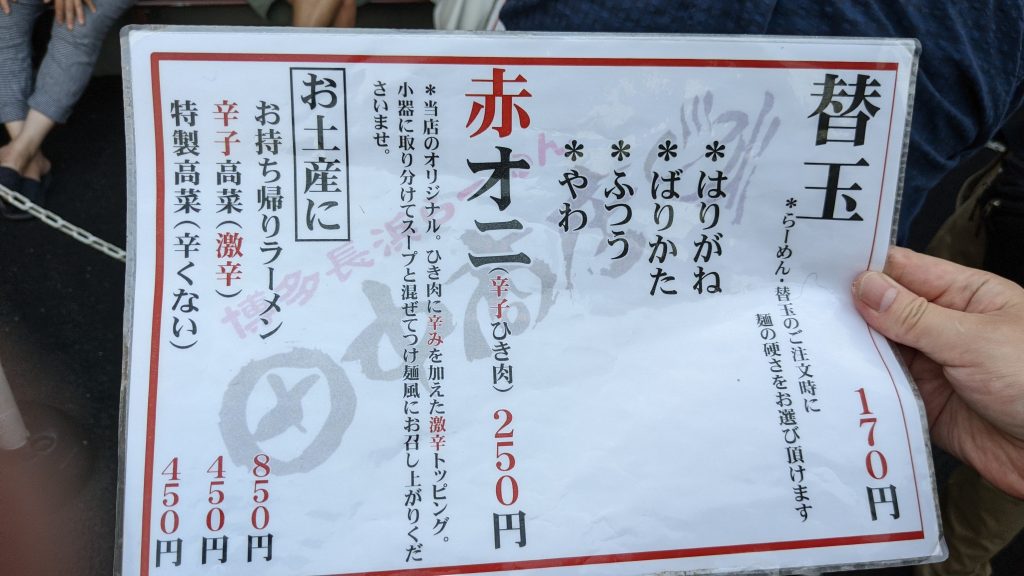 替玉 170円
*らーめん・替玉のご注文時に
麺の硬さをお選び頂けます
*はりがね
*ばりかた
*ふつう
*やわ
赤オニ(辛子ひき肉) 250円
*当店のオリジナル。ひき肉に辛みを加えた激辛トッピング。
小器に取り分けてスープと混ぜてつけ麺風にお召し上がりくだ
さいませ。
お土産に
お持ち帰りラーメン 850円
辛子高菜(激辛) 450円
特製高菜(辛くない) 450円
博多長浜らーめん